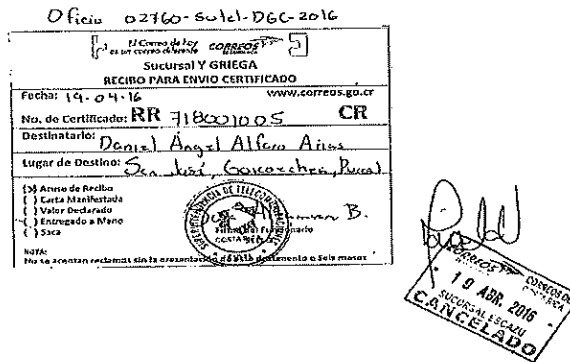 Oficio 02760-Sutel-DGC-2016
El Correo de hoy
es un correo diferente
CORREOS
Sucursal Y GRIEGA
RECIBO PARA ENVIO CERTIFICADO
Fecha: 19-04-16
www.correos.go.cr
No. de Certificado: RR 718001005 CR
Destinatario: Daniel Ángel Alfaro Arias
Lugar de Destino: San José, Goicoechea, Purral
(X) Acuso de Recibo
( ) Carta Manifestada
( ) Valor Declarado
( ) Entregado a Mano
( ) Saca
SUPERINTENDENCIA DE TELECOMUNICACIONES
COSTA RICA
B.
Firma del Funcionario
NOTA:
No se aceptan reclamos sin la presentación de este documento o Seis meses
CORREOS
CORREOS DE
COSTA RICA
19 ABR. 2016
SUCURSAL ESCAZU
CANCELADO